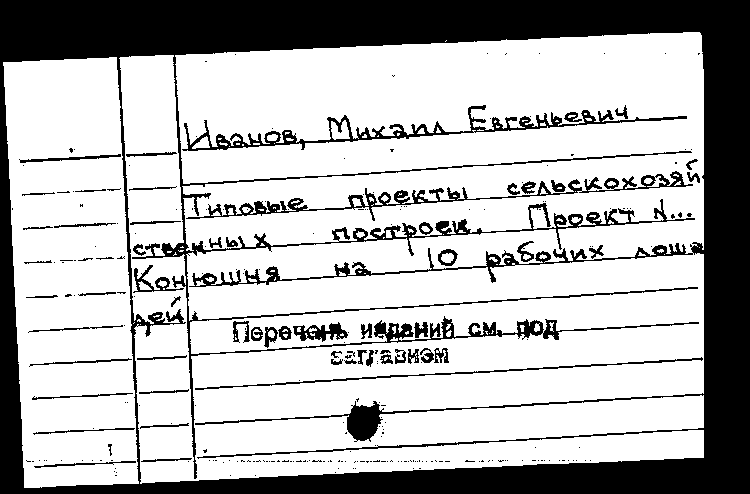 Иванов, Михаил Евгеньевич.
Типовые проекты сельскохозяй-
ственных построек. Проект N...
Конюшня на 10 рабочих лоша
дей.
Перечень изданий см. под
заглавием